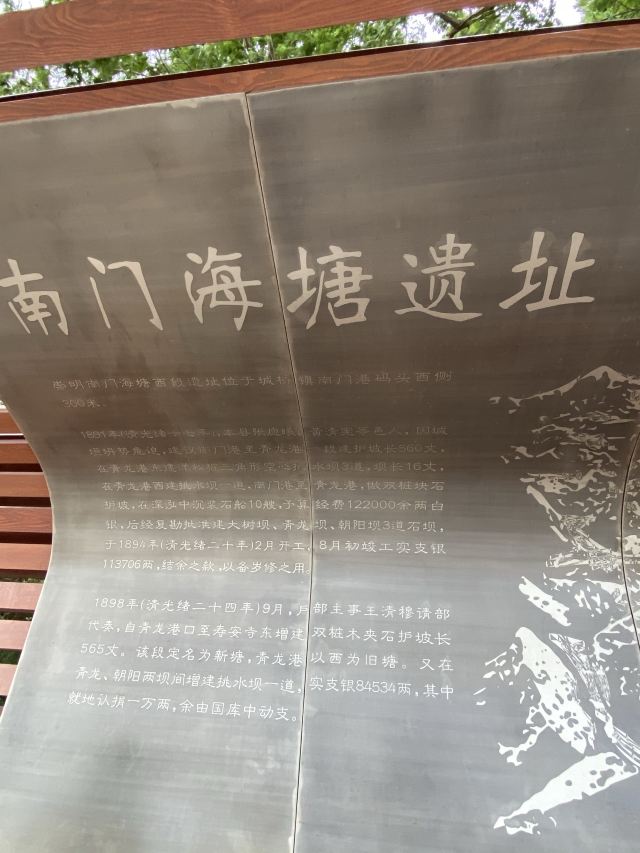 南门海塘遗址
崇明南门海塘西段遗址位于城桥镇南门港码头西侧
300米。
1891年(清光绪十七年),本县张应 黄清宪等邑人,因城
垣坍势危迫,建议南门港至青龙港一段建护坡长560丈,
在青龙港东 三角形空心挑水坝3道,坝长16丈,
在青龙港西建挑水坝一道,南门港至青龙港,做双桩块石
护坡,在深泓中沉装石船10艘,予算经费122000余两白
银,后经复勘批准建大树坝、青龙坝、朝阳坝3道石坝,
于1894年(清光绪二十年)2月开工,8月初竣工实支银
113706两,结余之款,以备岁修之用。
1898年(清光绪二十四年)9月,户部主事王清穆请部
代奏,自青龙港口至寿安寺东增建双桩木夹石护坡长
565丈。该段定名为新塘,青龙港以西为旧塘。又在
青龙、朝阳两坝间增建挑水坝一道,实支银84534两,其中
就地认捐一万两,余由国库中动支。